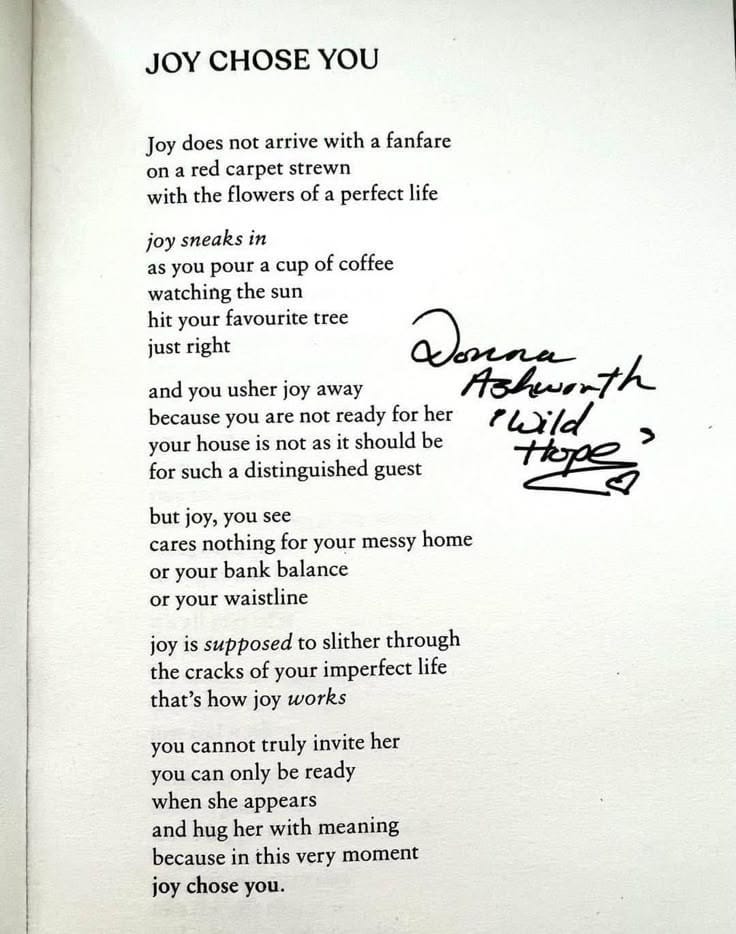 JOY CHOSE YOU
Joy does not arrive with a fanfare
on a red carpet strewn
with the flowers of a perfect life
joy sneaks in
as you pour a cup of coffee
watching the sun
hit your favourite tree
just right
and you usher joy away
because you are not ready for her
your house is not as it should be
for such a distinguished guest
but joy, you see
cares nothing for your messy home
or your bank balance
or your waistline
joy is supposed to slither through
the cracks of your imperfect life
that's how joy works
you cannot truly invite her
you can only be ready
when she appears
and hug her with meaning
because in this very moment
joy chose you.
Donna
Ashworth
'Wild
Hope'